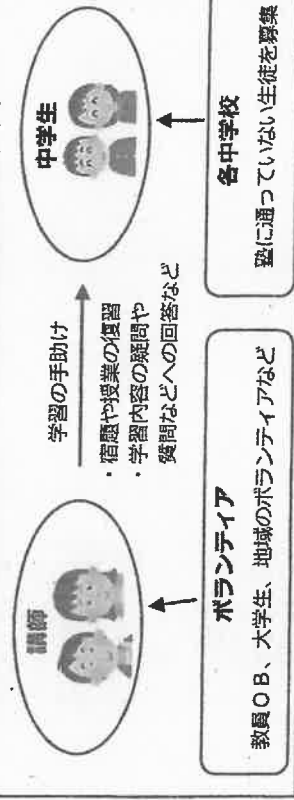 講師
学習の手助け
・宿題や授業の復習
・学習内容の疑問や
質問などへの回答など
中学生
ボランティア
教員OB、大学生、地域のボランティアなど
各中学校
塾に通っていない生徒を募集